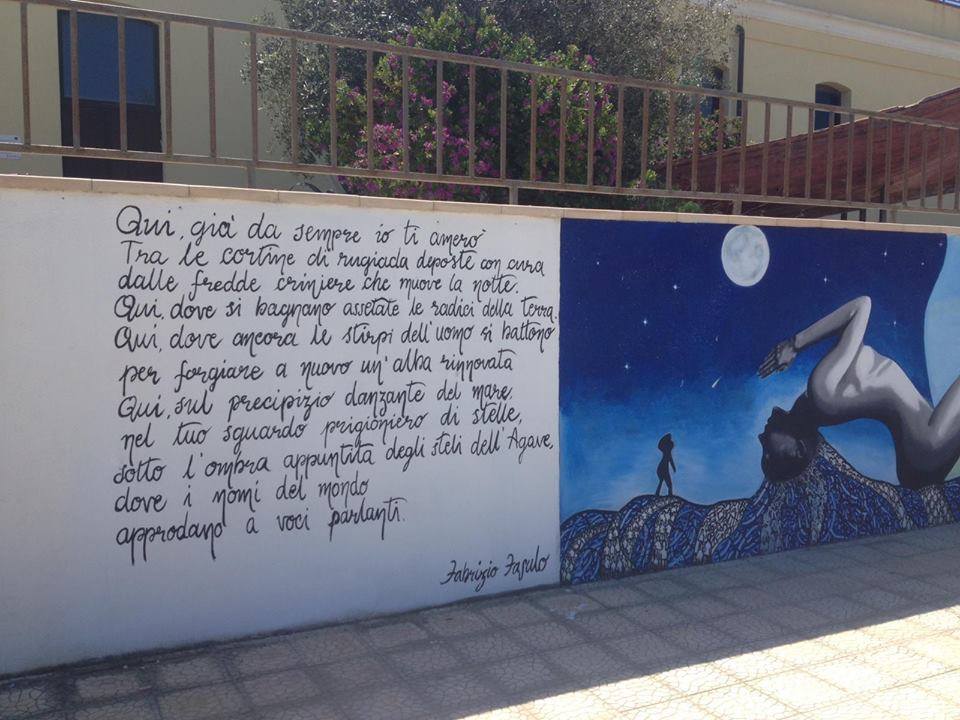 Qui, già da sempre io ti amerò
Tra le cortine di rugiada deposte con cura
dalle fredde criniere che muove la notte.
Qui, dove si bagnano assetate le radici della Terra.
Qui, dove ancora le stirpi dell'uomo si battono
per forgiare a nuovo un'alba rinnovata
Qui, sul precipizio danzante del mare.
nel tuo sguardo prigioniero di stelle,
sotto l'ombra appuntita degli steli dell'Agave,
dove i nomi del mondo
approdano a voci parlanti.
Fabrizio Fasulo